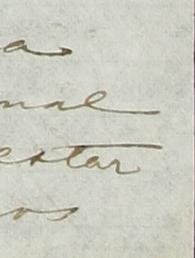 a
nal
estar
os